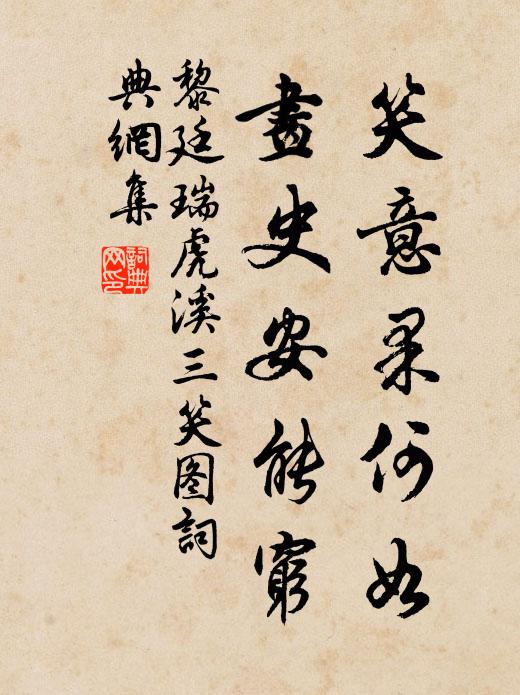 笑意果何如
畫史安能窮
黎廷瑞虎溪三笑图詞
典網集
詞典
网印